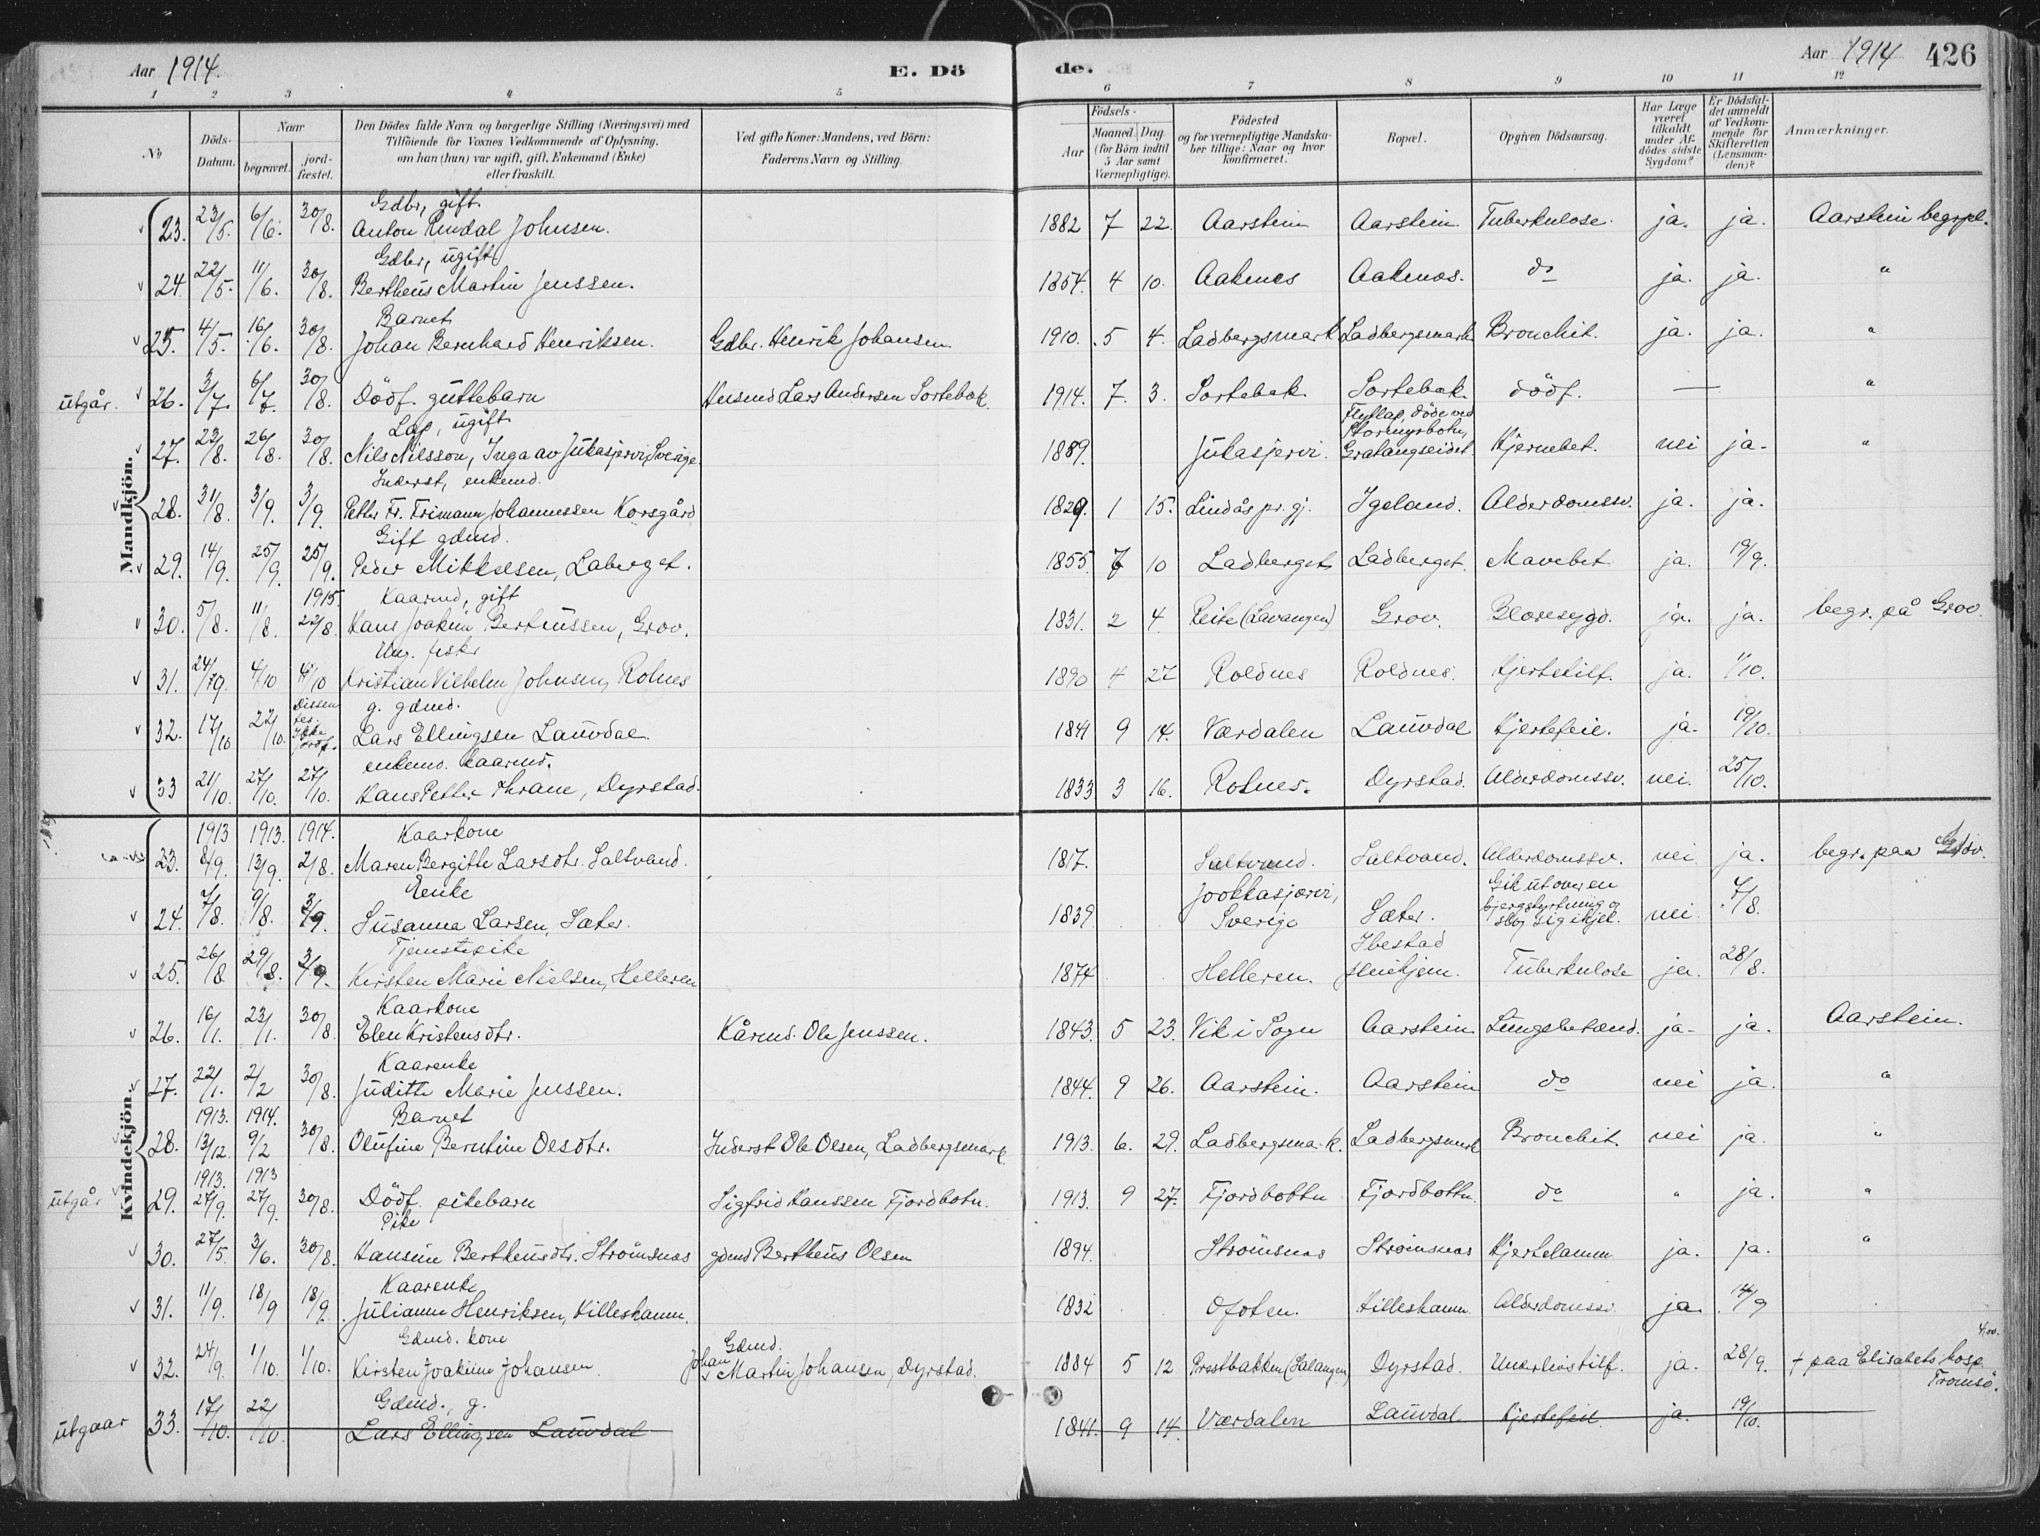 Aar 1914. E. Dö
de. Aar 1914 426
1 2 3 4 5 6 7 8 9 10 11 12
No
Döds-Datum.
Naar
begravet.
jord-fæstet.
Den Dödes fulde Navn og borgerlige Stilling (Næringsvei) med
Tilföiende for Voxnes Vedkommende af Oplysning,
om han (hun) var ugift, gift, Enkemand (Enke)
eller fraskilt.
Ved gifte Koner: Mandens, ved Börn:
Faderens Navn og Stilling.
Födsels-
Aar
Maaned. Dag
(for Börn indtil 5 Aar samt Værnepligtige).
Födested
og for værnepligtige Mandskaber tillige: Naar og hvor konfirmeret.
Bopæl.
Opgiven Dödsaarsag.
Har Læge været tilkaldt under Afdödes sidste Sygdom?
Er Dödsfaldet anmeldt af Vedkommende for Skifteretten (Lensmanden)?
Anmærkninger.
Mandkjön.
Gdbr, gift
23. 23/5. 6/6. 30/8. Anton Rindal Johnsen. 1882 7 22. Aarstein Aarstein Tuberkulose. ja. ja. Aarstein begrpl.
Gdbr, ugift
24. 22/5. 11/6. 30/8. Bertheus Martin Jenssen. 1854. 4 10. Aakenes Aakenæs. do ja. ja. "
Barnet
25. 4/5. 16/6. 30/8. Johan Bernhard Henriksen. Gdbr. Henrik Johansen 1910. 5 4. Ladbergsmark Ladbergsmark Bronchit. ja. ja. "
utgår. 26. 3/7. 6/7. 30/8. Dödf. guttebarn Husmd Lars Andersen Sortebæk. 1914. 7. 3. Sortebæk Sortebæk. dödf. — "
Lap, ugift
27. 23/8. 26/8. 30/8. Nils Nilsson, Inga av Jukasjervi, Sverige. 1889. Jukasjervi. Flytlap, döde ved Stormyrbotn, Gratangseidet. Hjernebet. nei ja. "
Inderst, enkemd.
28. 31/8. 3/9. 3/9. Petter Fr. Frimann Johannessen Korsgård 1829. 1 15. Lindås pr. gj. Igeland. Alderdomssv. ja. ja.
Gift gdmd.
29. 14/9. 25/9. 25/9. Peder Mikkelsen, Laberget. 1855. 7 10 Ladberget Ladberget. Mavebet. ja. 19/9.
1915. Kaarmd, gift
30. 5/8. 11/8. 22/8. Hans Joakim Bertheussen, Grov. 1831. 2 4. Reite (Lavangen) Grov. Blæresygd. ja. ja. begr. på Grov.
Ung. fisker
31. 24/9. 4/10 4/10 Kristian Vilhelm Johnsen, Rolnes 1890 4 27 Roldnes Roldnes. Hjertetilf. ja. 1/10.
Dissenter. Ikke jordf. g. gdmd.
32. 17/10 22/10. Lars Ellingsen Lauvdal. 1841 9 14. Værdalen Lauvdal Hjertefeil. ja. 19/10.
enkemd. kaarmd.
33 21/10. 27/10. 27/10. Hans Petter Thrane, Dyrstad. 1833 3 16. Rolnes. Dyrstad. Alderdomssv. nei. 25/10.
Kvindekjön.
1913 1913. 1914. Kaarkone
23. 8/9. 13/9. 2/8. Maren Bergitte Larsdtr. Saltvand. 1817. Saltvand. Saltvand. Alderdomssv. nei ja. begr. paa Grov.
Enke
24. 7/8. 9/8. 3/9. Susanna Larsen, Sæter. 1839 Jookkasjærvi, Sverige Sæter. Gik ut over en bjergstyrtning og slog sig ihjel. nei 7/8.
Tjenestepike
25. 26/8 29/8. 3/9. Kirsten Marie Nielsen, Helleren 1874 Helleren. Ibestad sykehjem. Tuberkulose ja. 28/8.
Kaarkone
26. 16/1. 23/1. 30/8. Elen Kristensdtr. Kårmd. Ole Jenssen. 1843. 5 23. Vik i Sogn Aarstein Lungebetænd. ja. ja. Aarstein.
Kaarenke
27. 22/1. 2/2 30/8. Judithe Marie Jenssen. 1844. 9 26. Aarstein. Aarstein do nei ja. "
1913. 1914. Barnet
28. 13/12. 9/2 30/8. Olufine Berntine Olesdtr. Inderst Ole Olsen, Ladbergsmark. 1913. 6. 29. Ladbergsmark. Ladbergsmark Bronchit. nei ja. "
1913. 1913
utgår 29. 27/9. 27/9. 30/8. Dödf. pikebarn Sigfrid Hanssen Fjordbotn. 1913. 9 27. Fjordbottn Fjordbottn. do " ja. "
Pike
30. 27/5. 3/6. 30/8. Hansine Bertheusdtr. Strömsnæs gdmd Bertheus Olsen 1894. Strömsnæs Strömsnæs Hjertelamm. ja. ja. "
Kaarenke
31. 11/9. 18/9 18/9 Julianne Henriksen, Hilleshamn. 1832 Ofoten. Hilleshamn Alderdomssv. ja. 14/9
Gdmd. kone Gdmd.
32. 24/9. 1/10. 1/10. Kirsten Joakime Johansen Johan Martin Johansen, Dyrstad. 1884 5 12 Prestbakken (Salangen) Dyrstad. Underlivstilf. ja. 28/9. + paa Elisabets hosp. Tromsö.
Gdmd., g.
utgaar 33. 17/10. 22/10. Lars Ellingsen Lauvdal 1841. 9 14. Værdalen Lauvdal Hjertefeil ja. 19/10.